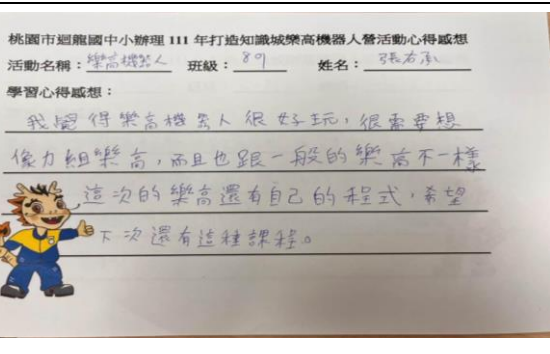 桃園市迴龍國中小辦理 111 年打造知識城樂高機器人營活動心得感想
活動名稱：樂高機器人 班級：801 姓名：張右承
學習心得感想：
我覺得樂高機器人很好玩，很需要想
像力組樂高，而且也跟一般的樂高不一樣
這次的樂高還有自己的程式，希望
下次還有這種課程。